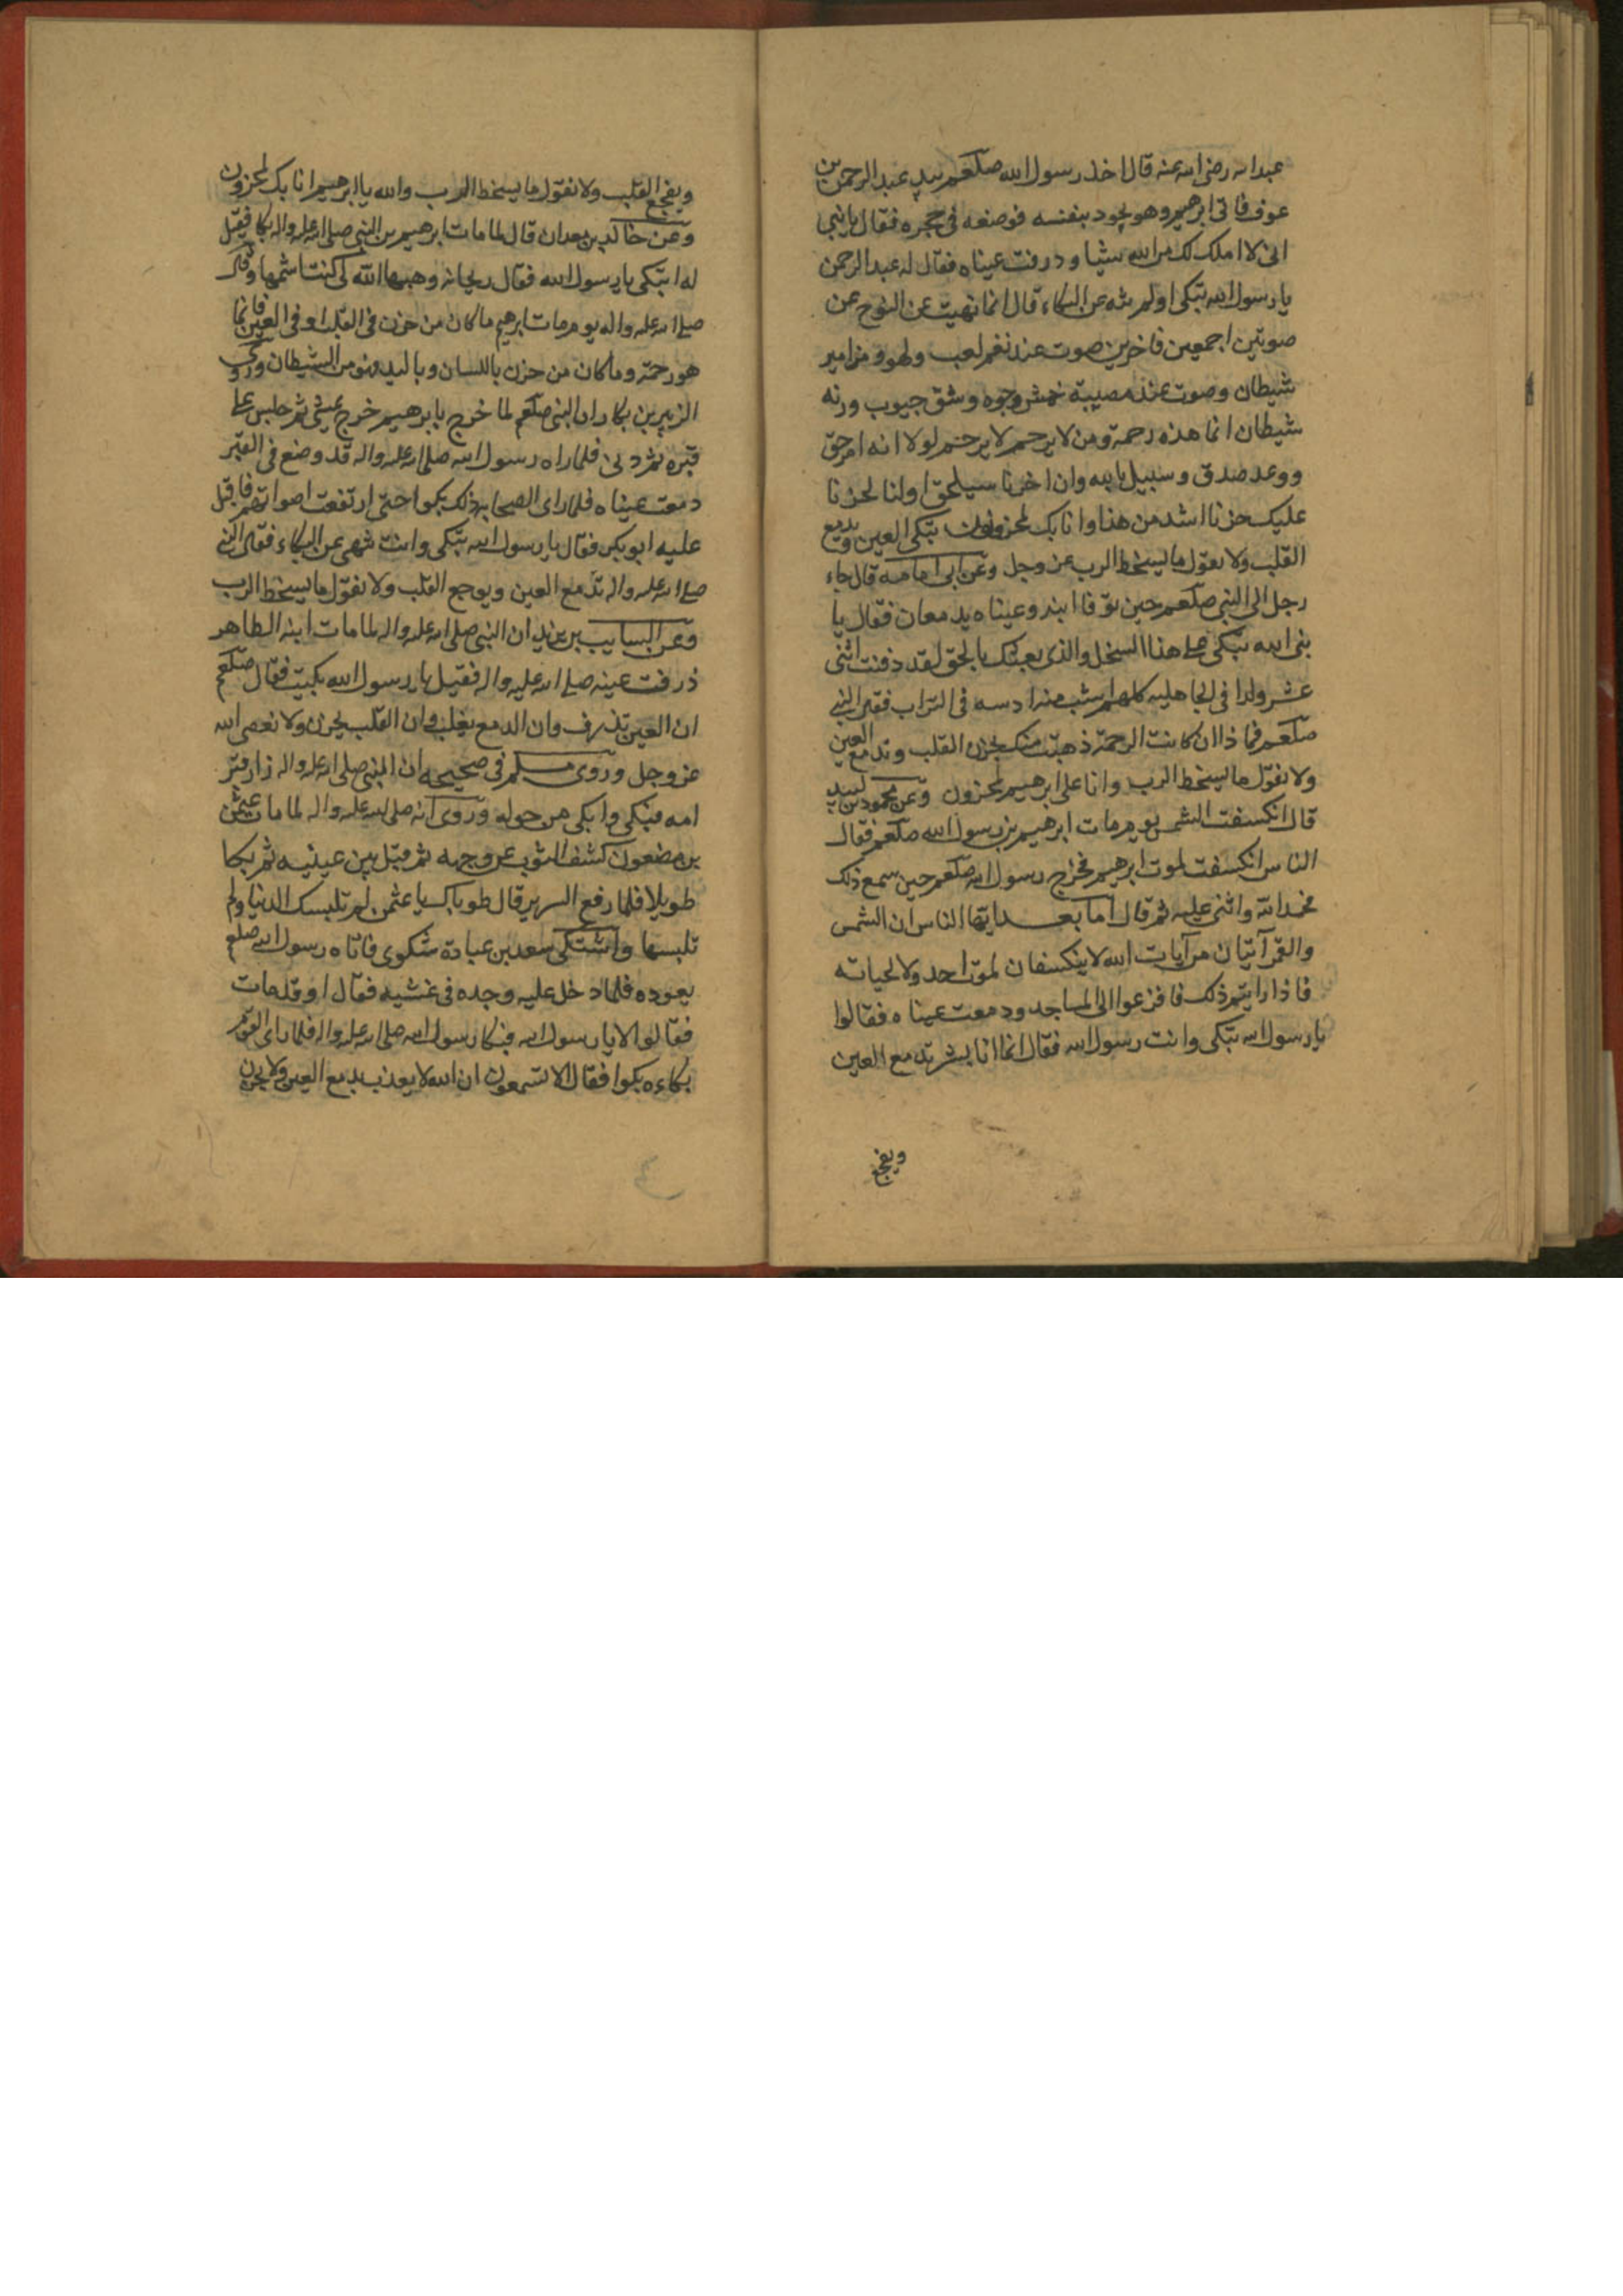 عبدالله رضى الله عنه قال اخذ رسول الله صلعم بيد عبدالرحمن بن
عوف فاتى ابرهيم وهو يجود بنفسه فوضعه فى حجره فقال يا بنى
انى لا املك لك من الله شيئا و درفت عيناه فقال له عبدالرحمن
يا رسول الله تبكى اولم تنه عن البكاء قال انما نهيت عن النوح عن
صوتين اجمعين فاخرين صوت عند نغم لعب ولهو ومزامير
شيطان وصوت عند مصيبة خمش وجوه وشق جيوب ورنه
شيطان انما هذه رحمة ومن لا يرحم لا يرحم لولا انه امر حق
ووعد صدق وسبيل بالله وان اخرنا سيلحق اولنا لحزنا
عليك حزنا اشد من هذا وانا بك لمحزونون تبكى العين ويدمع
القلب ولا نقول ما يسخط الرب عز وجل وعن ابى امامه قال جاء
رجل الى النبى صلعم حين توفا ابنه وعيناه يدمعان فقال يا
نبى الله تبكى على هذا السخل والذى بعثك بالحق لقد دفنت اثنى
عشر ولدا فى الجاهليه كلهم اشب منه ادسه فى التراب فقال النبى
صلعم فماذا ان كانت الرحمة ذهبت منك يحزن القلب وتدمع العين
ولا نقول ما يسخط الرب وانا على ابرهيم لمحزون وعن محمود بن لبيد
قال انكسفت الشمس يوم مات ابرهيم بن رسول الله صلعم فقال
الناس انكسفت لموت ابرهيم فخرج رسول الله صلعم حين سمع ذلك
فحمد الله واثنى عليه ثم قال اما بعد ايها الناس ان الشمس
والقمر آيتان من آيات الله لا ينكسفان لموت احد ولا لحياته
فاذا رايتم ذلك فافزعوا الى المساجد ودمعت عيناه فقالوا
يا رسول الله تبكى وانت رسول الله فقال انما انا بشر تدمع العين
ويفجع
ويفجع القلب ولا نقول ما يسخط الرب والله يا ابرهيم انا بك لمحزونون
وعن خالد بن معدان قال لما مات ابرهيم بن النبى صلى الله عليه واله بكا فقيل
له اتبكى يا رسول الله فقال ريحانه وهبها الله لى كنت اشمها وقال
صلى الله عليه واله يوم مات ابرهيم ما كان من حزن فى القلب او فى العين فانما
هو رحمة وما كان من حزن باللسان وباليد فهو من الشيطان وروى
الزبير بن بكار ان النبى صلعم لما خرج بابرهيم خرج يمشى ثم جلس على
قبره ثم دلى فلما راه رسول الله صلى الله عليه واله قد وضع فى القبر
دمعت عيناه فلما راى الصحابه ذلك بكوا حتى ارتفعت اصواتهم فاقبل
عليه ابو بكر فقال يا رسول الله تبكى وانت تنهى عن البكاء فقال النبى
صلى الله عليه واله تدمع العين ويوجع القلب ولا نقول ما يسخط الرب
وعن السايب بن يزيد ان النبى صلى الله عليه واله لما مات ابنه الطاهر
ذرفت عينه صلى الله عليه واله فقيل يا رسول الله بكيت فقال صلعم
ان العين تذرف وان الدمع يغلب وان القلب يحزن ولا نعصى الله
عز وجل وروى مسلم فى صحيحه ان النبى صلى الله عليه واله زار قبر
امه فبكى وابكى من حوله وروى انه صلى الله عليه واله لما مات عثمن
بن مضعون كشف الثوب عن وجهه ثم قبل بين عينيه ثم بكا
طويلا فلما رفع السرير قال طوباك يا عثمن لم تلبسك الدنيا ولم
تلبسها واشتكى سعد بن عبادة شكوى فاتاه رسول الله صلعم
يعوده فلما دخل عليه وجده فى غشيه فقال او قد مات
فقالوا لا يا رسول الله فبكا رسول الله صلى الله عليه واله فلما راى القوم
بكاءه بكوا فقال الا تسمعون ان الله لا يعذب بدمع العين ولا بحزن